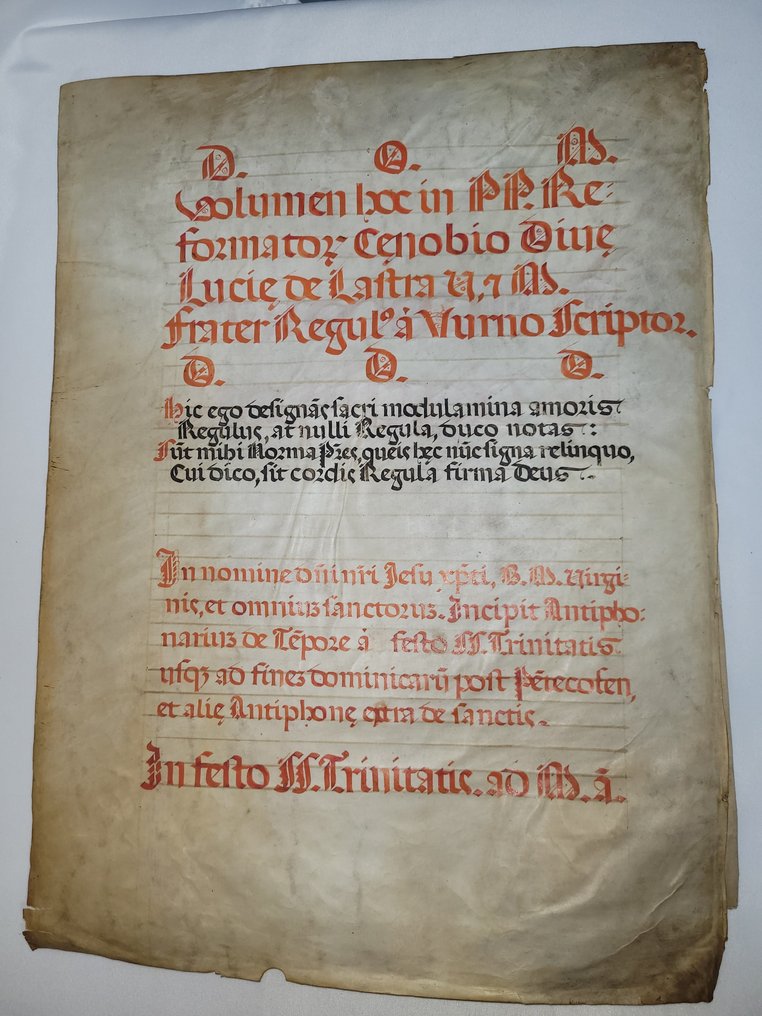 D. O. M.
Volumen hoc in PP. Re:
formatorꝝ Cęnobio Diuę
Lucię de Lastra V, ⁊ M.
Frater Regulꝰ à Vurno Scriptor.
D. D. D.
Hic ego designãs sacri modulamina amoris
Regulus, at nulli Regula, duco notas:
Sũt mihi Norma Pr̃es, queis hęc nũc signa relinquo,
Cui dico, sit cordis Regula firma deus.
In nomine dñi nr̃i Jesu xp̃ti, B. M. Virgi-
nis, et omniuꝫ sanctoruꝫ. Incipit Antipho:
nariuꝫ de Tẽpore à festo SS. Trinitatis
usqꝫ ad fineꝫ dominicarũ post Pẽtecosten,
et alię Antiphonę extra de sanctis.
In festo SS. Trinitatis. ad M. ã.